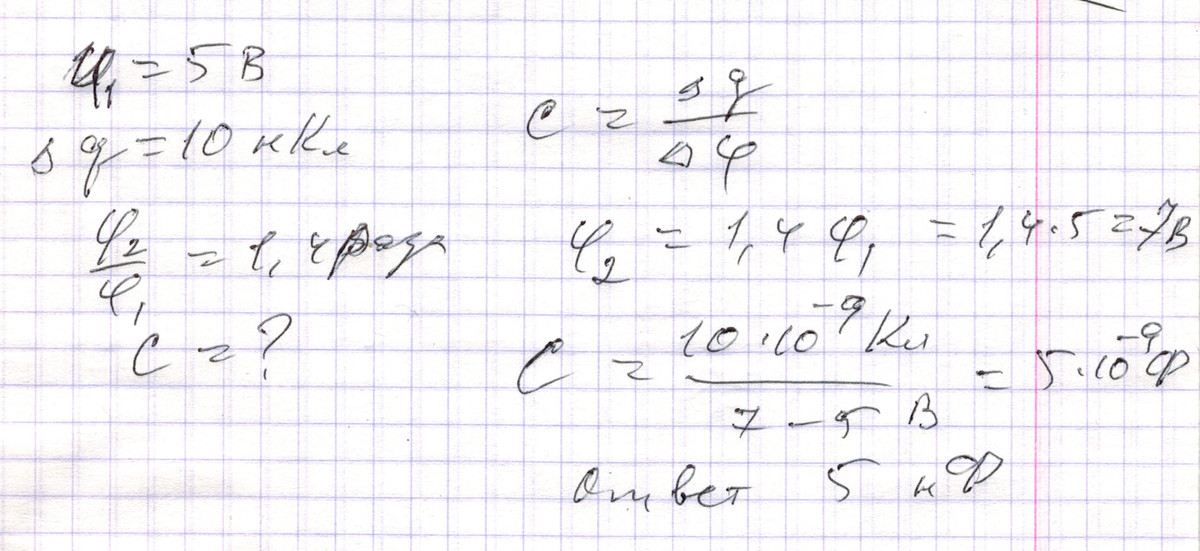 φ₁ = 5 В
Δq = 10 нКл
φ₂/φ₁ = 1,4 раза
C = ?
C = Δq/Δφ
φ₂ = 1,4 φ₁ = 1,4·5 = 7В
C = 10·10⁻⁹ Кл / 7 – 5 В = 5·10⁻⁹ Ф
ответ 5 нФ